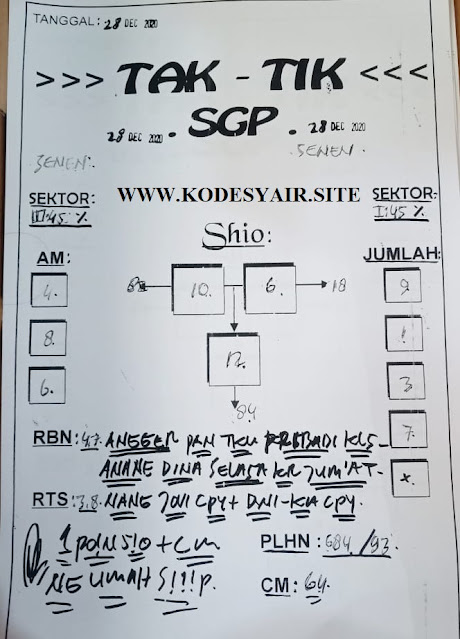 TANGGAL: 28 DEC 2020
>>> TAK - TIK <<<
28 DEC 2020 . SGP . 28 DEC 2020
SENEN. SENEN.
WWW.KODESYAIR.SITE
SEKTOR: SEKTOR:
III:45 % I:45 %
Shio:
AM: JUMLAH:
4. 10. 6. 18 9
8. 12. 1
6. 84 3
7.
x.
RBN: 4.7. ANGGER PAN TKU PRIBADI KLS-
ANANE DINA SELASA KR JUM'AT-
RTS: 3.8. NANE JONI CPY+ DNI-KIA CPY.
1 PDN 510 + CM PLHN : 684./93.
NE UMAH S!!!P. CM: 64.